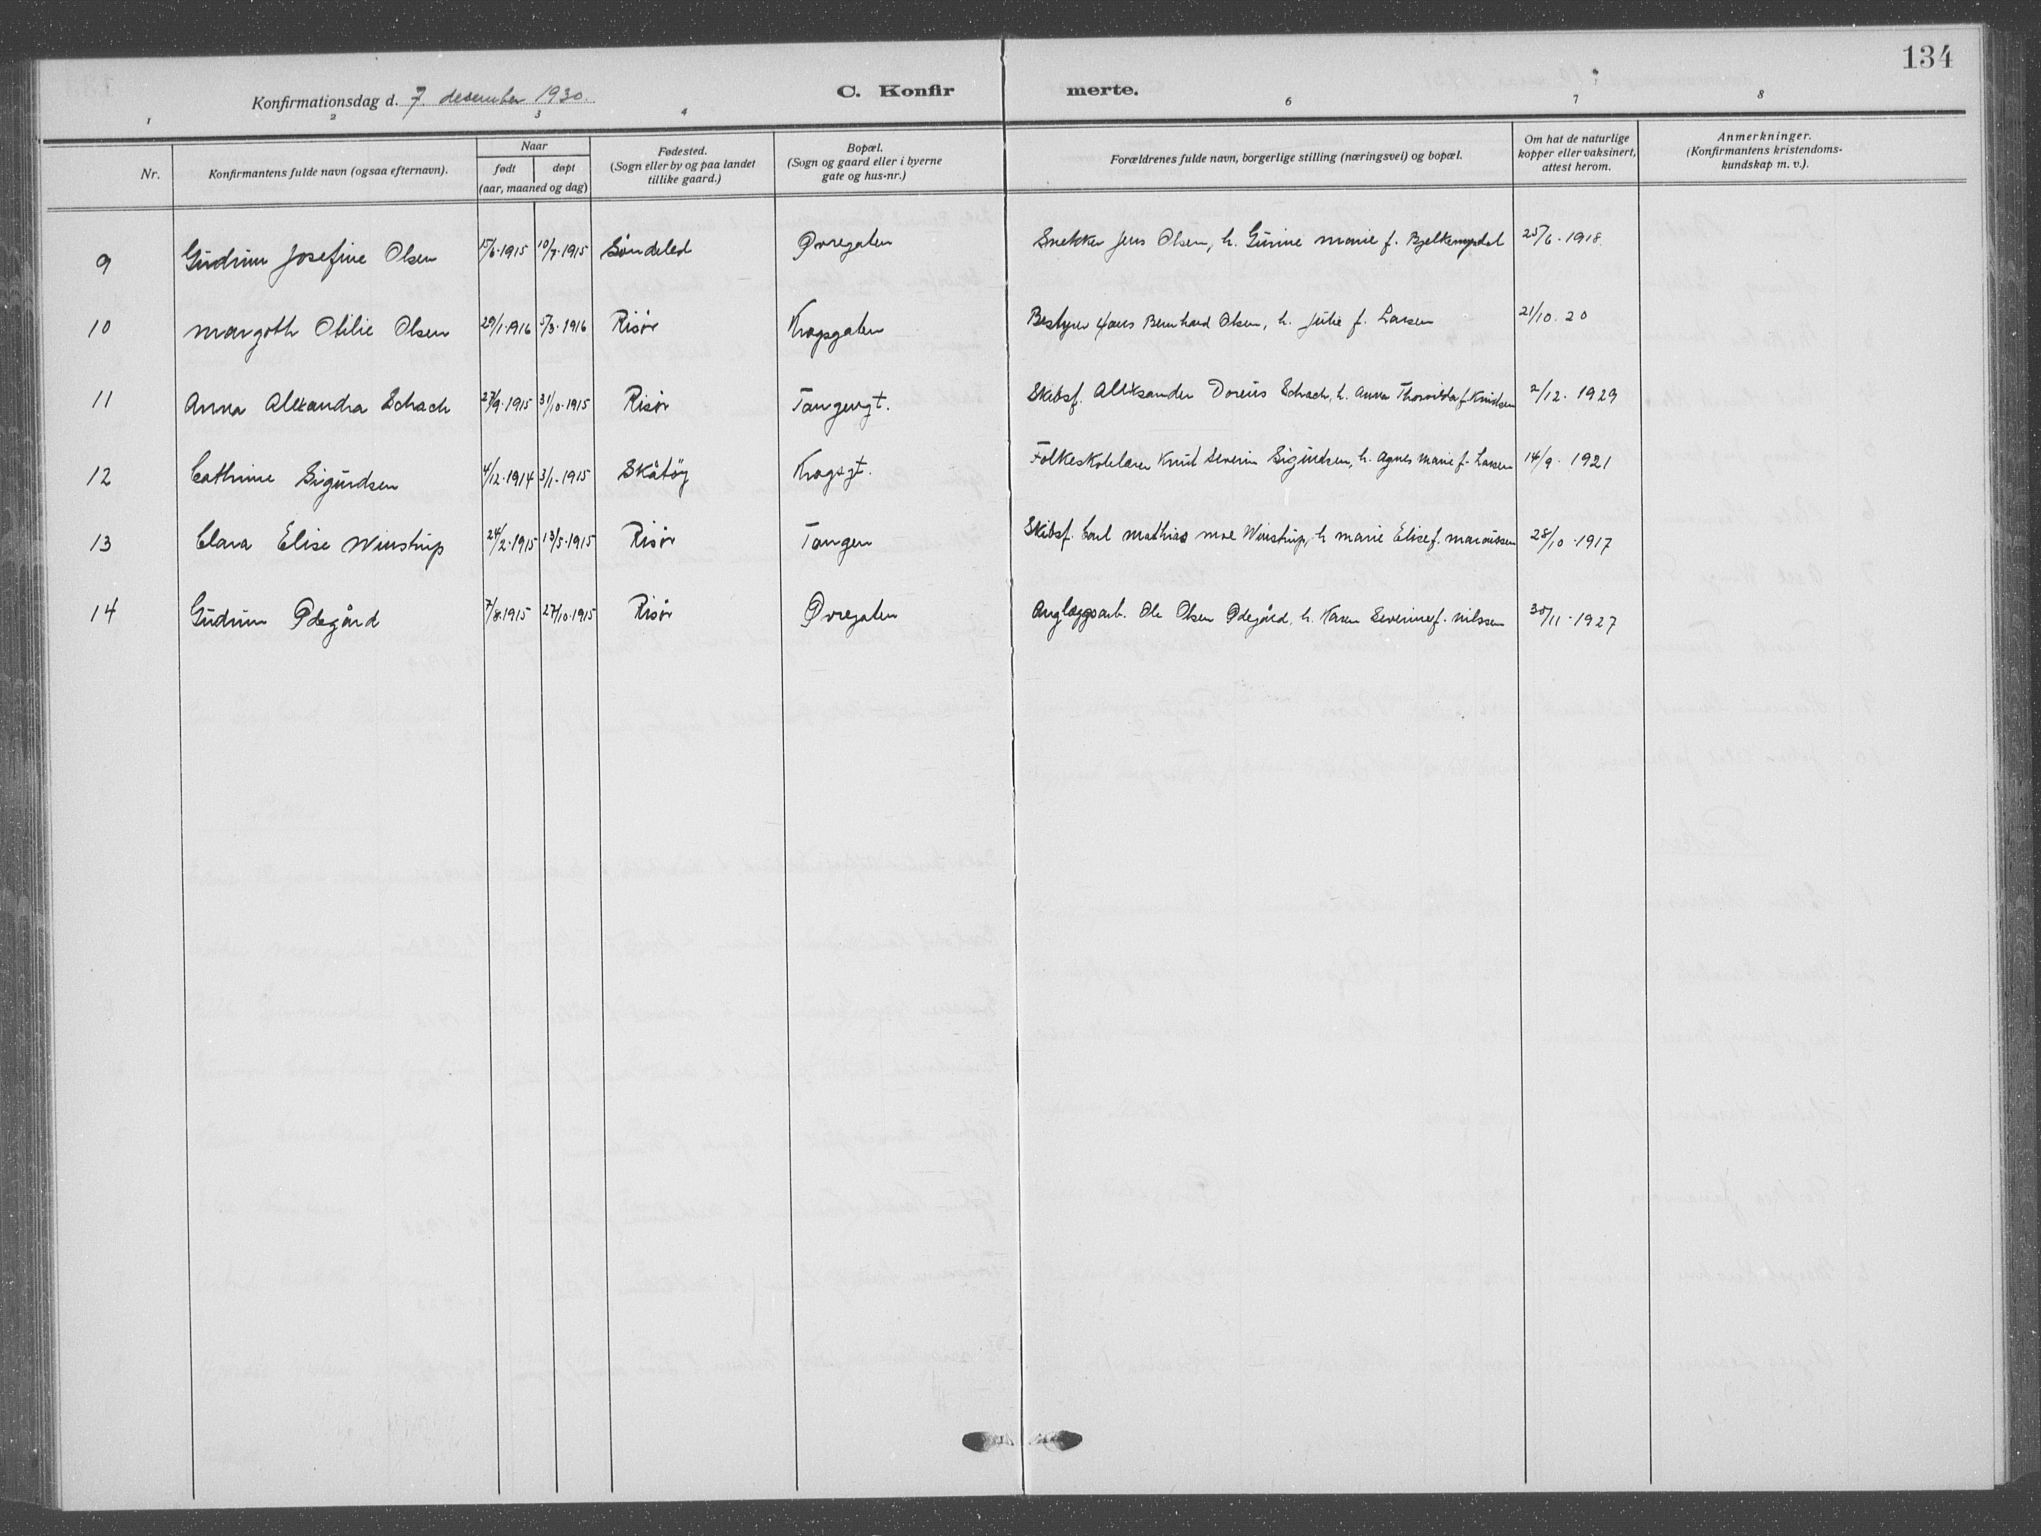 134
Konfirmationsdag d. 7. desember 1930.
C. Konfirmerte.
1 2 3 4 6 7 8
Nr. Konfirmantens fulde navn (ogsaa efternavn). Naar født døpt (aar, maaned og dag) Fødested. (Sogn eller by og paa landet tillike gaard.) Bopæl. (Sogn og gaard eller i byerne gate og hus-nr.) Forældrenes fulde navn, borgerlige stilling (næringsvei) og bopæl. Om hat de naturlige kopper eller vaksinert, attest herom. Anmerkninger. (Konfirmantens kristendomskundskap m. v.).
9 Gudrun Josefine Olsen 15/6-1915 10/7-1915 Søndeled Øvregaten Snekker Jens Olsen, h. Gurine Marie f. 25/6-1918
10 Margoth Otilie Olsen 29/1-1916 5/3-1916 Risør Kragsgaten Bestyrer Hans Bernhard Olsen, h. Julie f. Larsen 21/10.20
11 Anna Alexandra Schach 27/9-1915 31/10-1915 Risør Tangengt. Skibsf. Alexsander Doreus Schach, h. Anna Thorvilda f. Knudsen 2/12-1929
12 Cathrine Sigurdsen 4/12-1914 3/1-1915 Skåtøy Kragsgt. Folkeskolelærer Knut Severin Sigurdsen, h. Agnes Marie f. Larsen 14/9-1921
13 Clara Elise Winstrup 24/2-1915 13/5-1915 Risør Tangen Skibsf. Carl Mathias Moe Winstrup, h. Marie Elise f. Marcussen 28/10-1917
14 Gudrun Ødegård 7/8-1915 27/10-1915 Risør Øvregaten Anglæggsarb. Ole Olsen Ødegård, h. Karen Severine f. Nilssen 30/11-1927